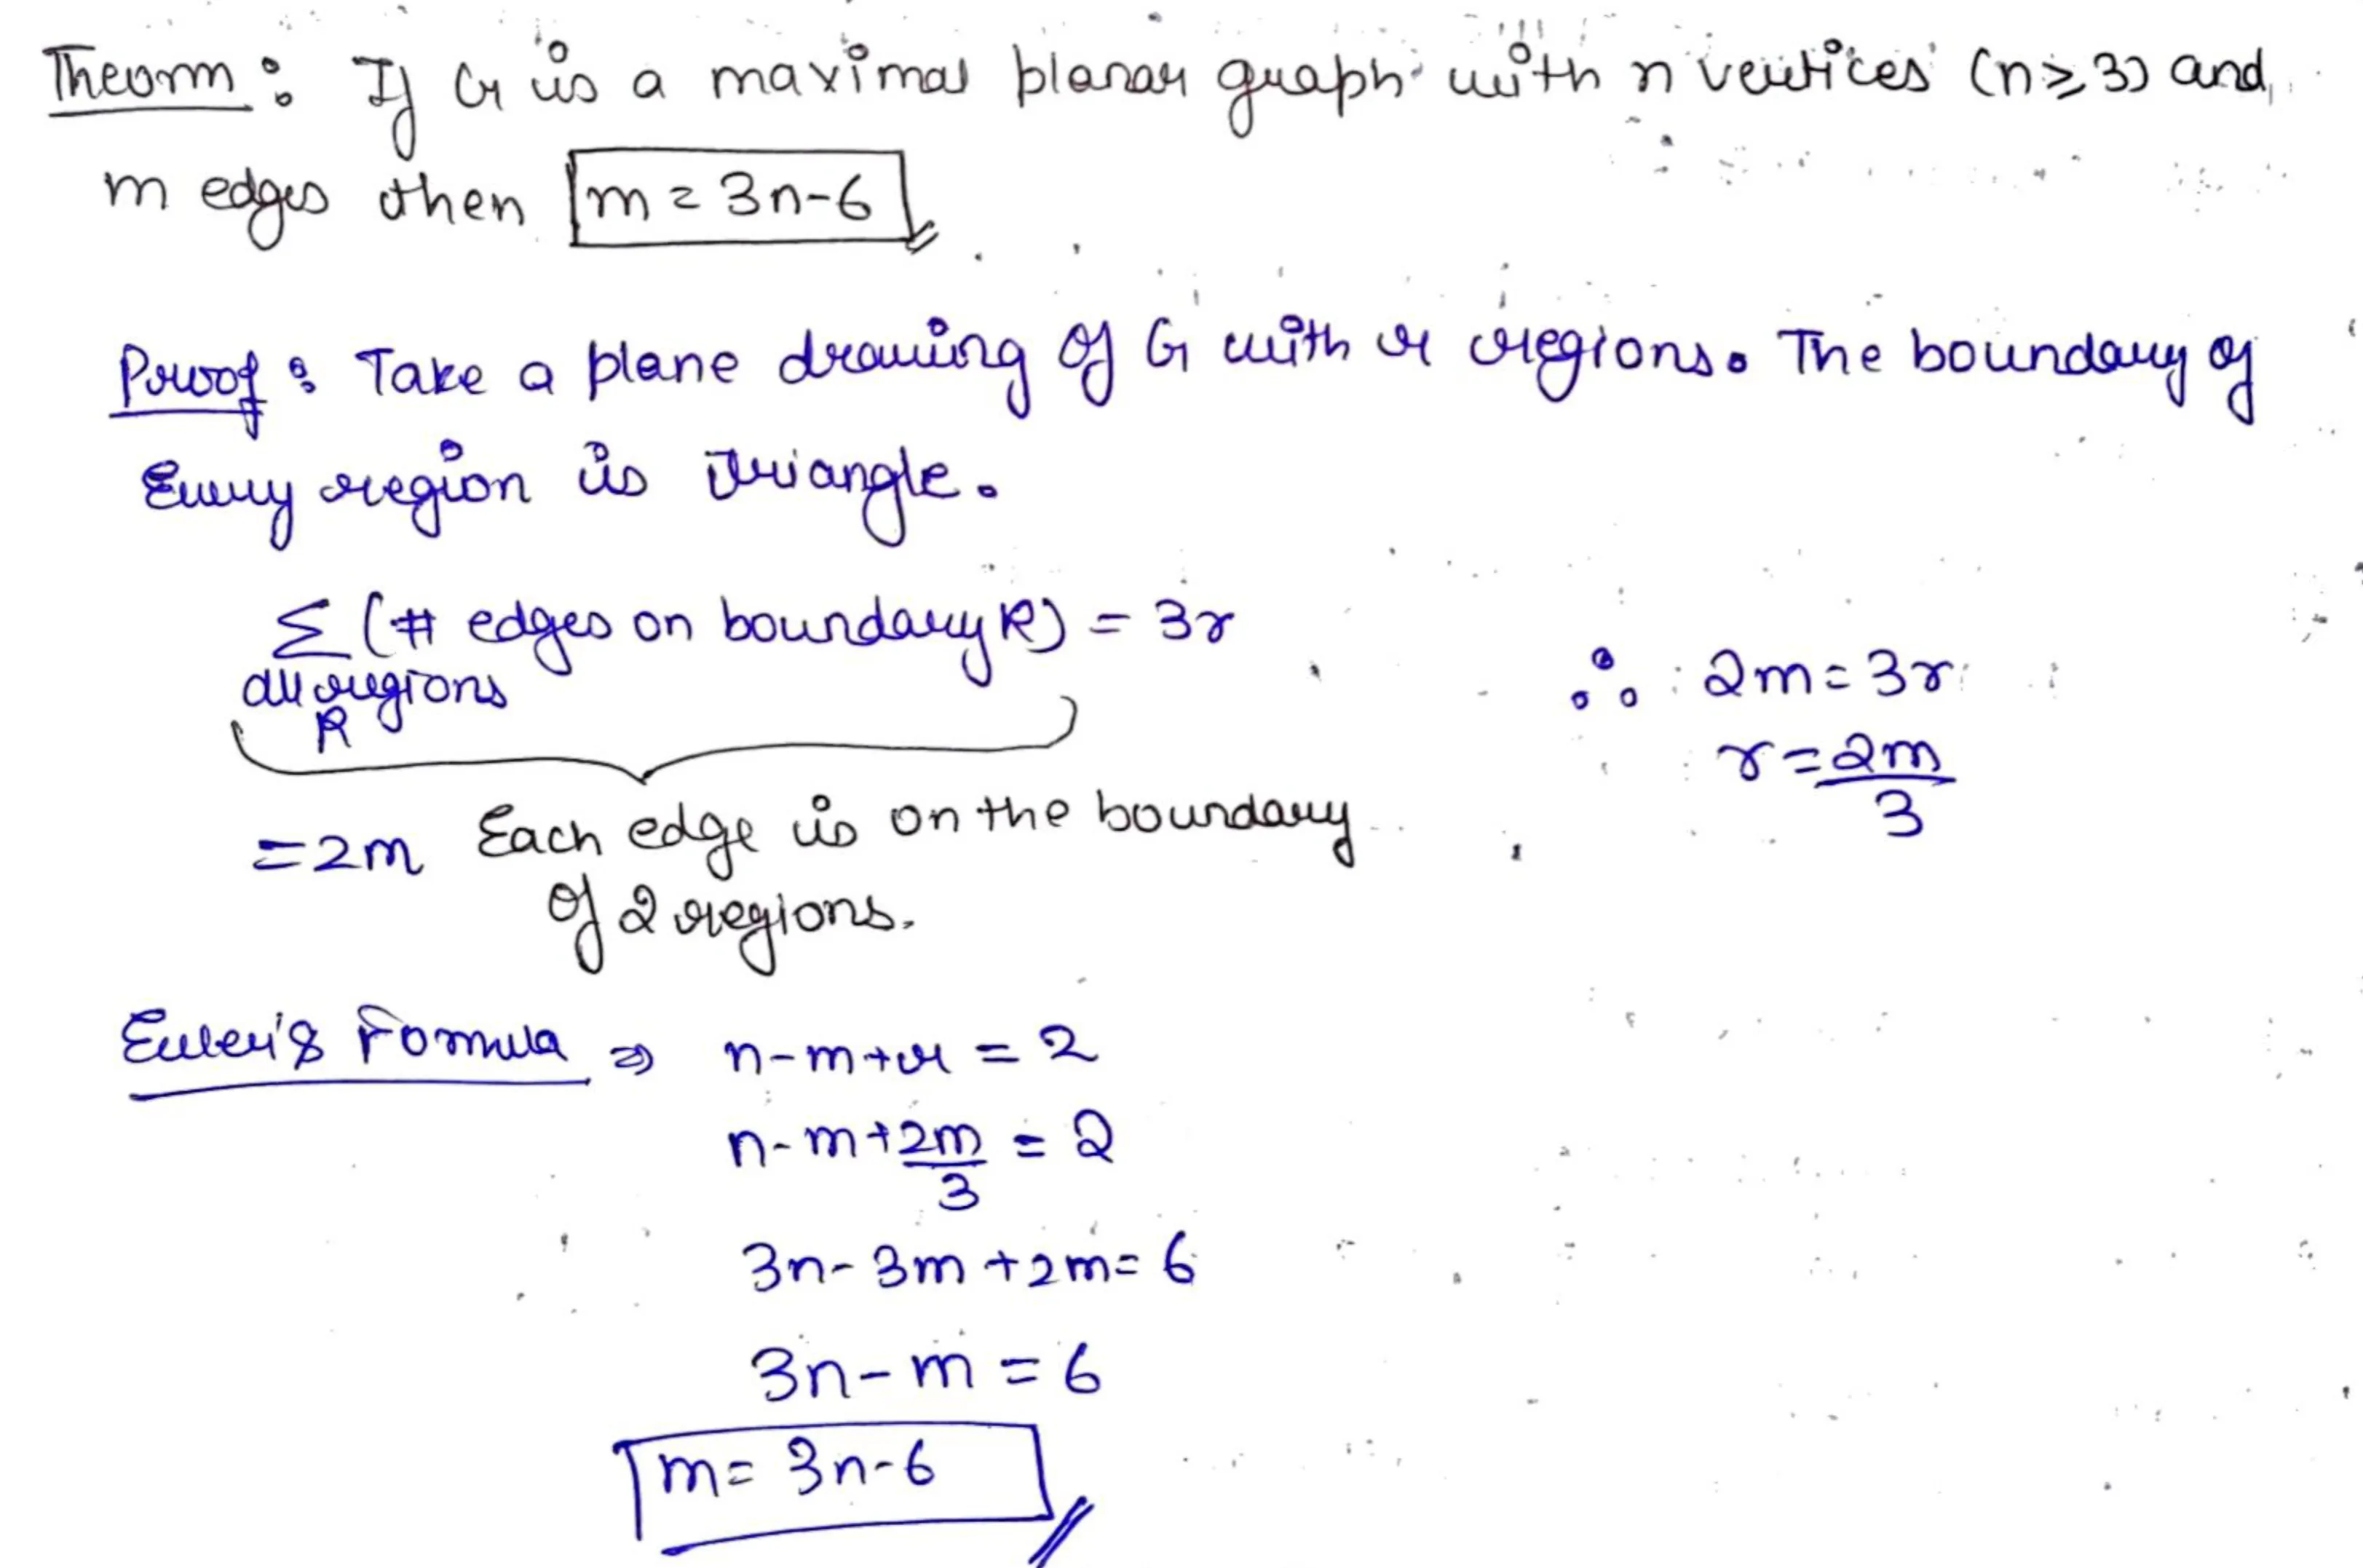 Theorm: If G is a maximal planar graph with n vertices (n≥3) and
m edges then m = 3n-6
Proof: Take a plane drawing of G with r regions. The boundary of
Every region is triangle.
Σ (# edges on boundary R) = 3r
all regions
R
∴ 2m = 3r
r = 2m/3
= 2m Each edge is on the boundary
of 2 regions.
Euler's Fomula ⇒ n-m+r = 2
n-m+2m/3 = 2
3n-3m+2m = 6
3n-m = 6
m = 3n-6